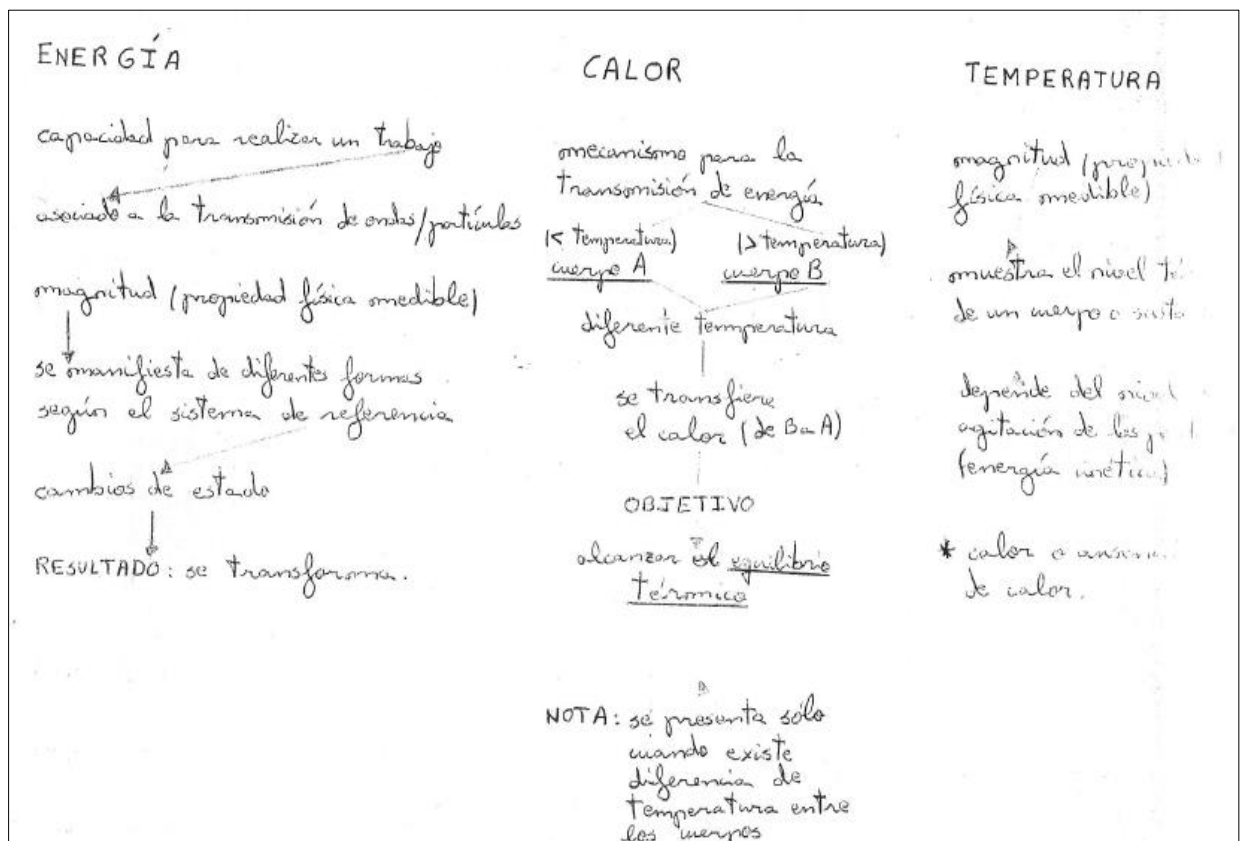 ENERGÍA
capacidad para realizar un trabajo
asociado a la transmisión de ondas/partículas
magnitud (propiedad física medible)
se manifiesta de diferentes formas
según el sistema de referencia
cambios de estado
RESULTADO: se transforma.
CALOR
mecanismo para la
transmisión de energía
(< temperatura) (> temperatura)
cuerpo A cuerpo B
diferente temperatura
se transfiere
el calor (de B a A)
OBJETIVO
alcanzar el equilibrio
térmico
NOTA: se presenta sólo
cuando existe
diferencia de
temperatura entre
los cuerpos
TEMPERATURA
magnitud (
física medible)
muestra el nivel
de un cuerpo o
depende del nivel
agitación de las
(energía cinética)
* calor o
de calor.